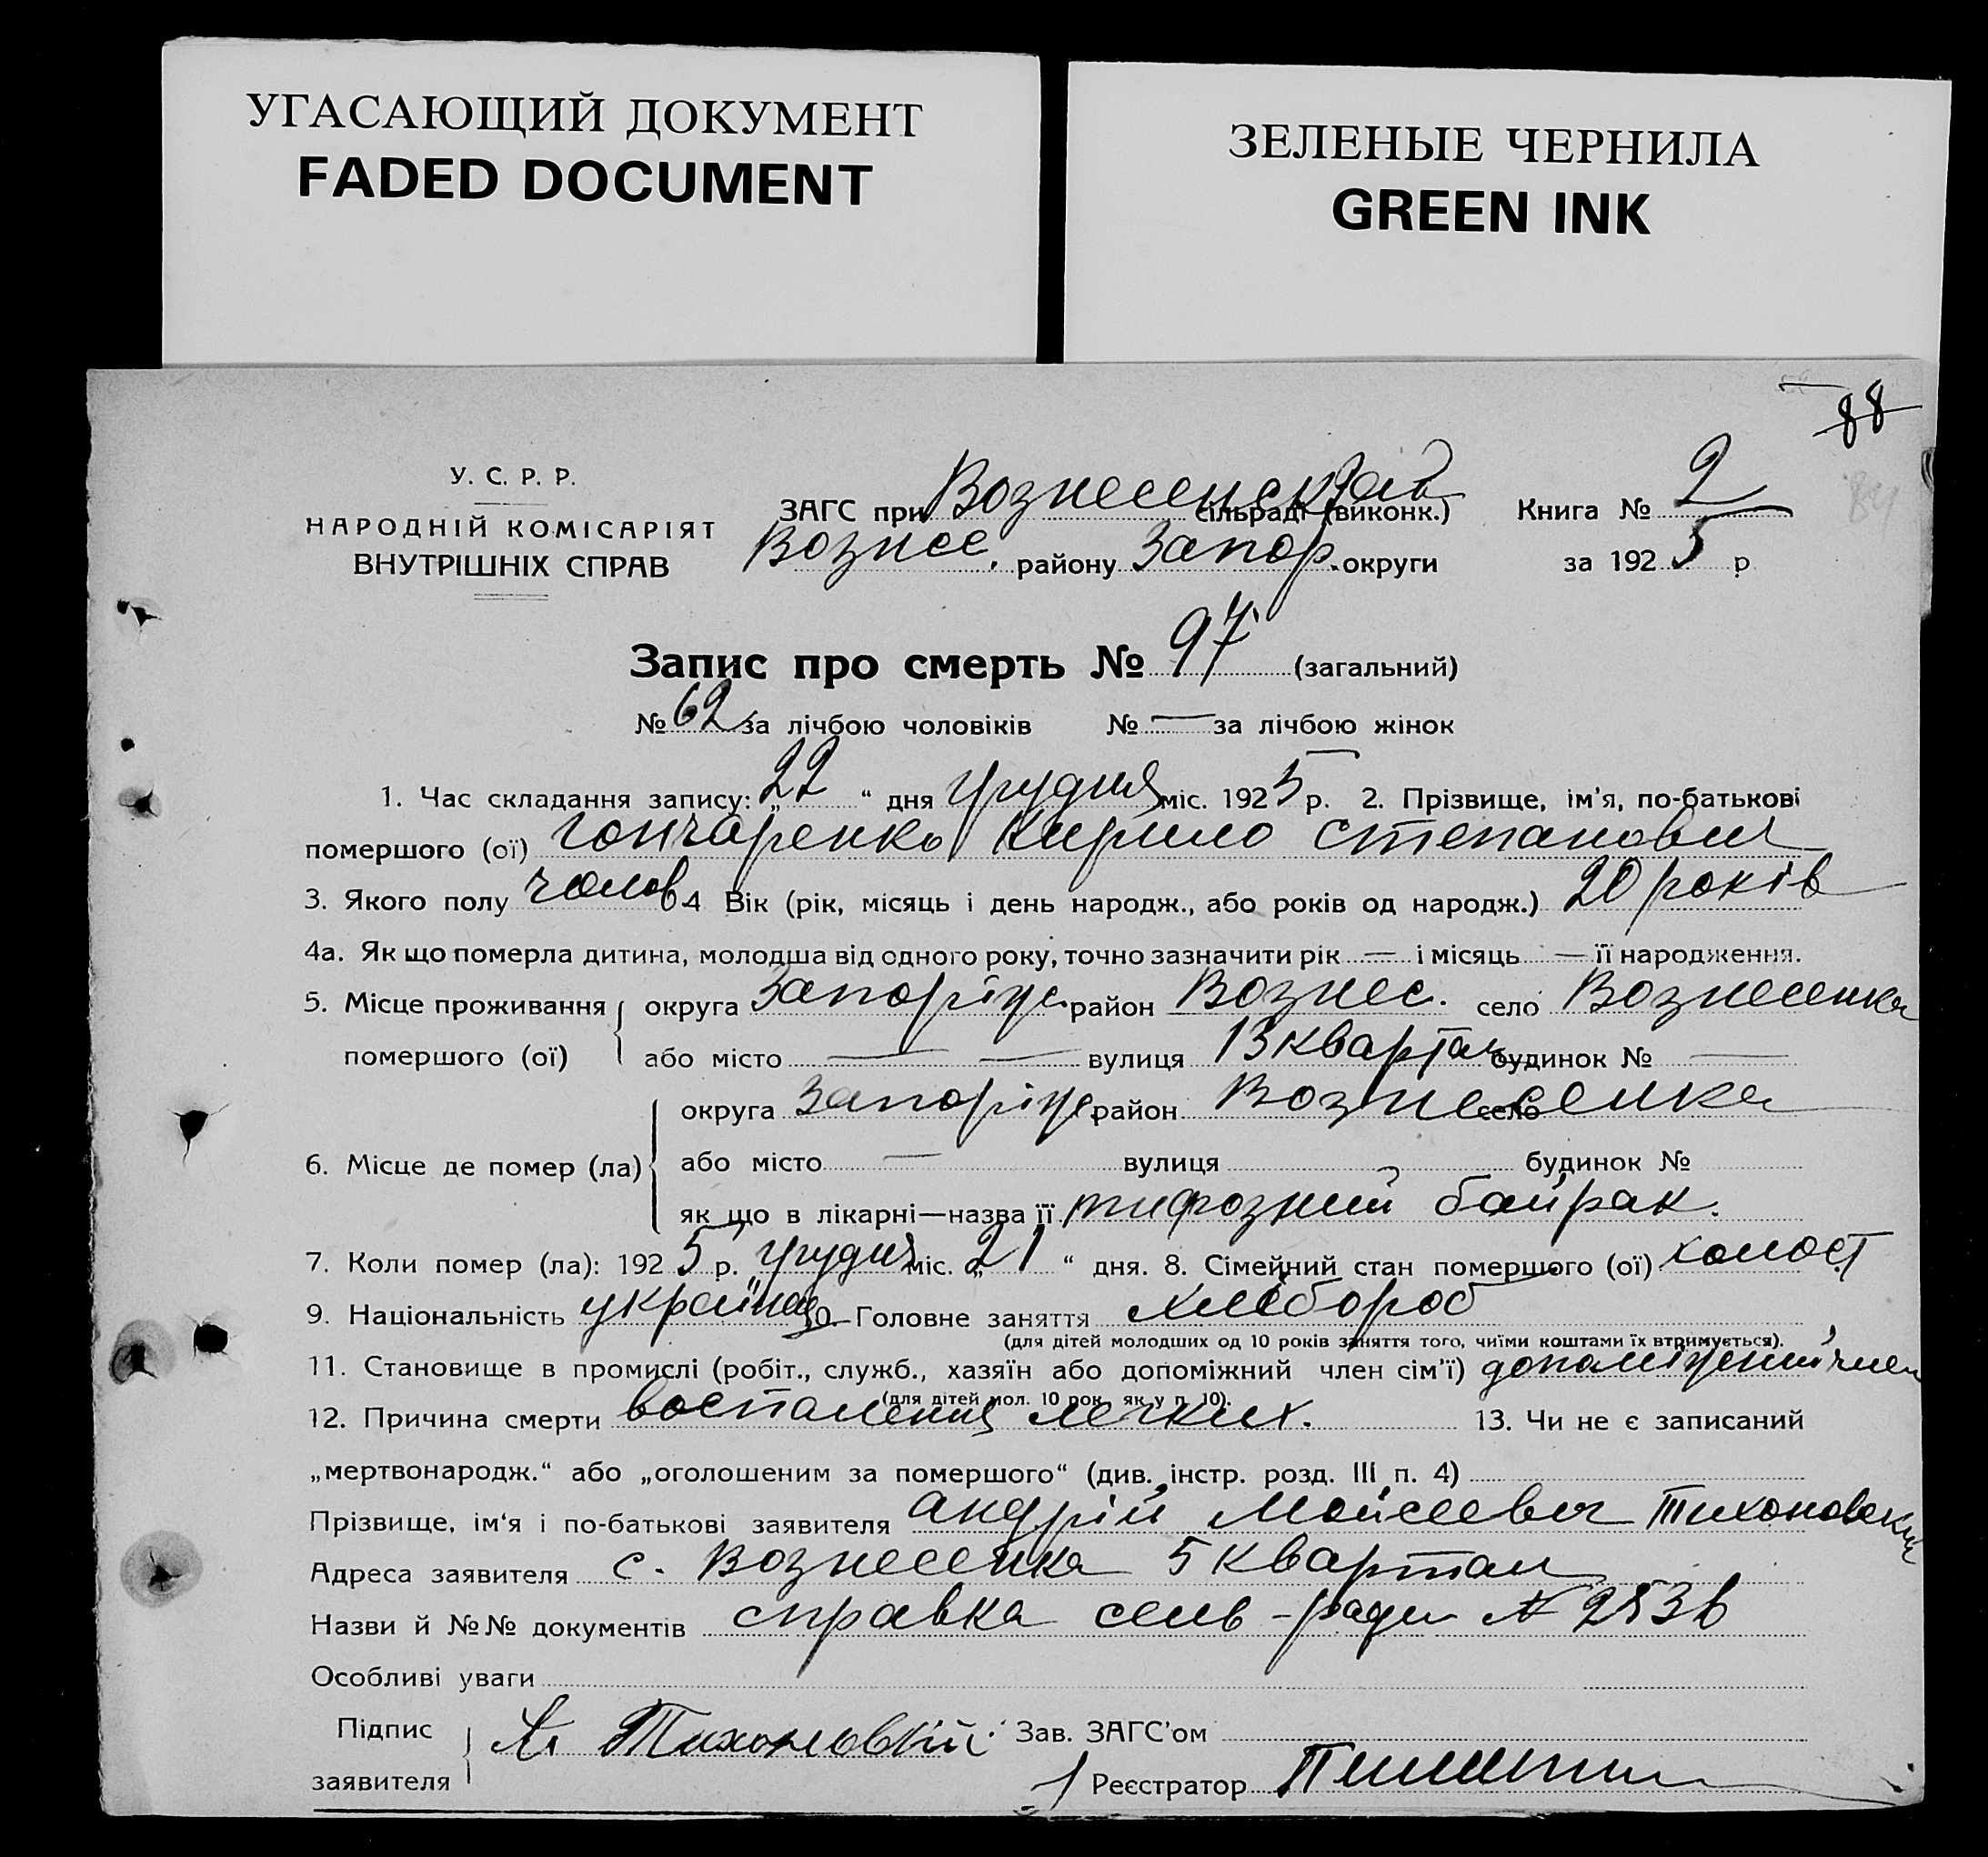 УГАСАЮЩИЙ ДОКУМЕНТ
FADED DOCUMENT
ЗЕЛЕНЫЕ ЧЕРНИЛА
GREEN INK
88
84
У. С. Р. Р.
НАРОДНІЙ КОМІСАРІЯТ
ВНУТРІШНІХ СПРАВ
ЗАГС при Вознесенск сільраді (виконк.)
Вознес. району Запор. округи
Книга № 2
за 1925 р
Запис про смерть № 97 (загальний)
№ 62 за лічбою чоловіків № — за лічбою жінок
1. Час складання запису: „22“ дня грудня міс. 1925 р. 2. Прізвище, ім'я, по-батькові
помершого (ої) Гончаренко Кирило Степанович
3. Якого полу чолов 4 Вік (рік, місяць і день народж., або років од народж.) 20 років
4а. Як що померла дитина, молодша від одного року, точно зазначити рік — і місяць — її народження.
5. Місце проживання округа Запоріж. район Вознес. село Вознесенка
помершого (ої) або місто — — вулиця 13 квартал будинок № —
округа Запоріж. район Вознесенка село
6. Місце де помер (ла) або місто — вулиця будинок №
як що в лікарні—назва її тифозний байрак.
7. Коли помер (ла): 1925 р. „грудня міс. „21“ дня. 8. Сімейний стан помершого (ої) холост
9. Національність україн 10. Головне заняття хлібороб
(для дітей молодших од 10 років заняття того, чиїми коштами їх втримується).
11. Становище в промислі (робіт., служб., хазяїн або допоміжний член сім'ї) допоміжний член
(для дітей мол. 10 рок. як у п. 10).
12. Причина смерти воспаления легких. 13. Чи не є записаний
„мертвонародж.“ або „оголошеним за помершого“ (див. інстр. розд. III п. 4)
Прізвище, ім'я і по-батькові заявителя Андрій Мойсеевич Тихоновский
Адреса заявителя с. Вознесенка 5 квартал
Назви й №№ документів справка сель-ради №
Особливі уваги
Підпис
заявителя
Тихоновскій
Зав. ЗАГС'ом
Реєстратор